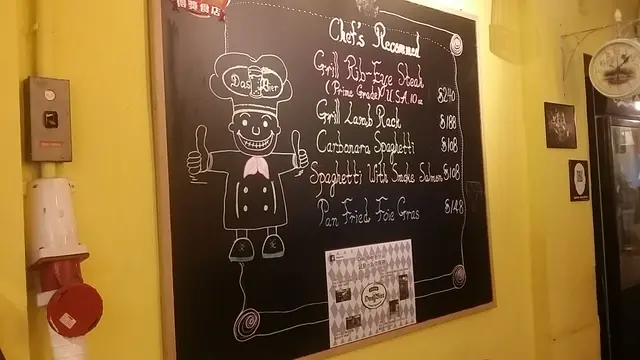 Chef's Recommed
Grill Rib-Eye Steak
(Prime Grade) U.S.A. 10oz $240
Grill Lamb Rack $188
Carbonara Spaghetti $108
Spaghetti With Smoke Salmon $108
Pan Fried Foie Gras $148
Das Bier